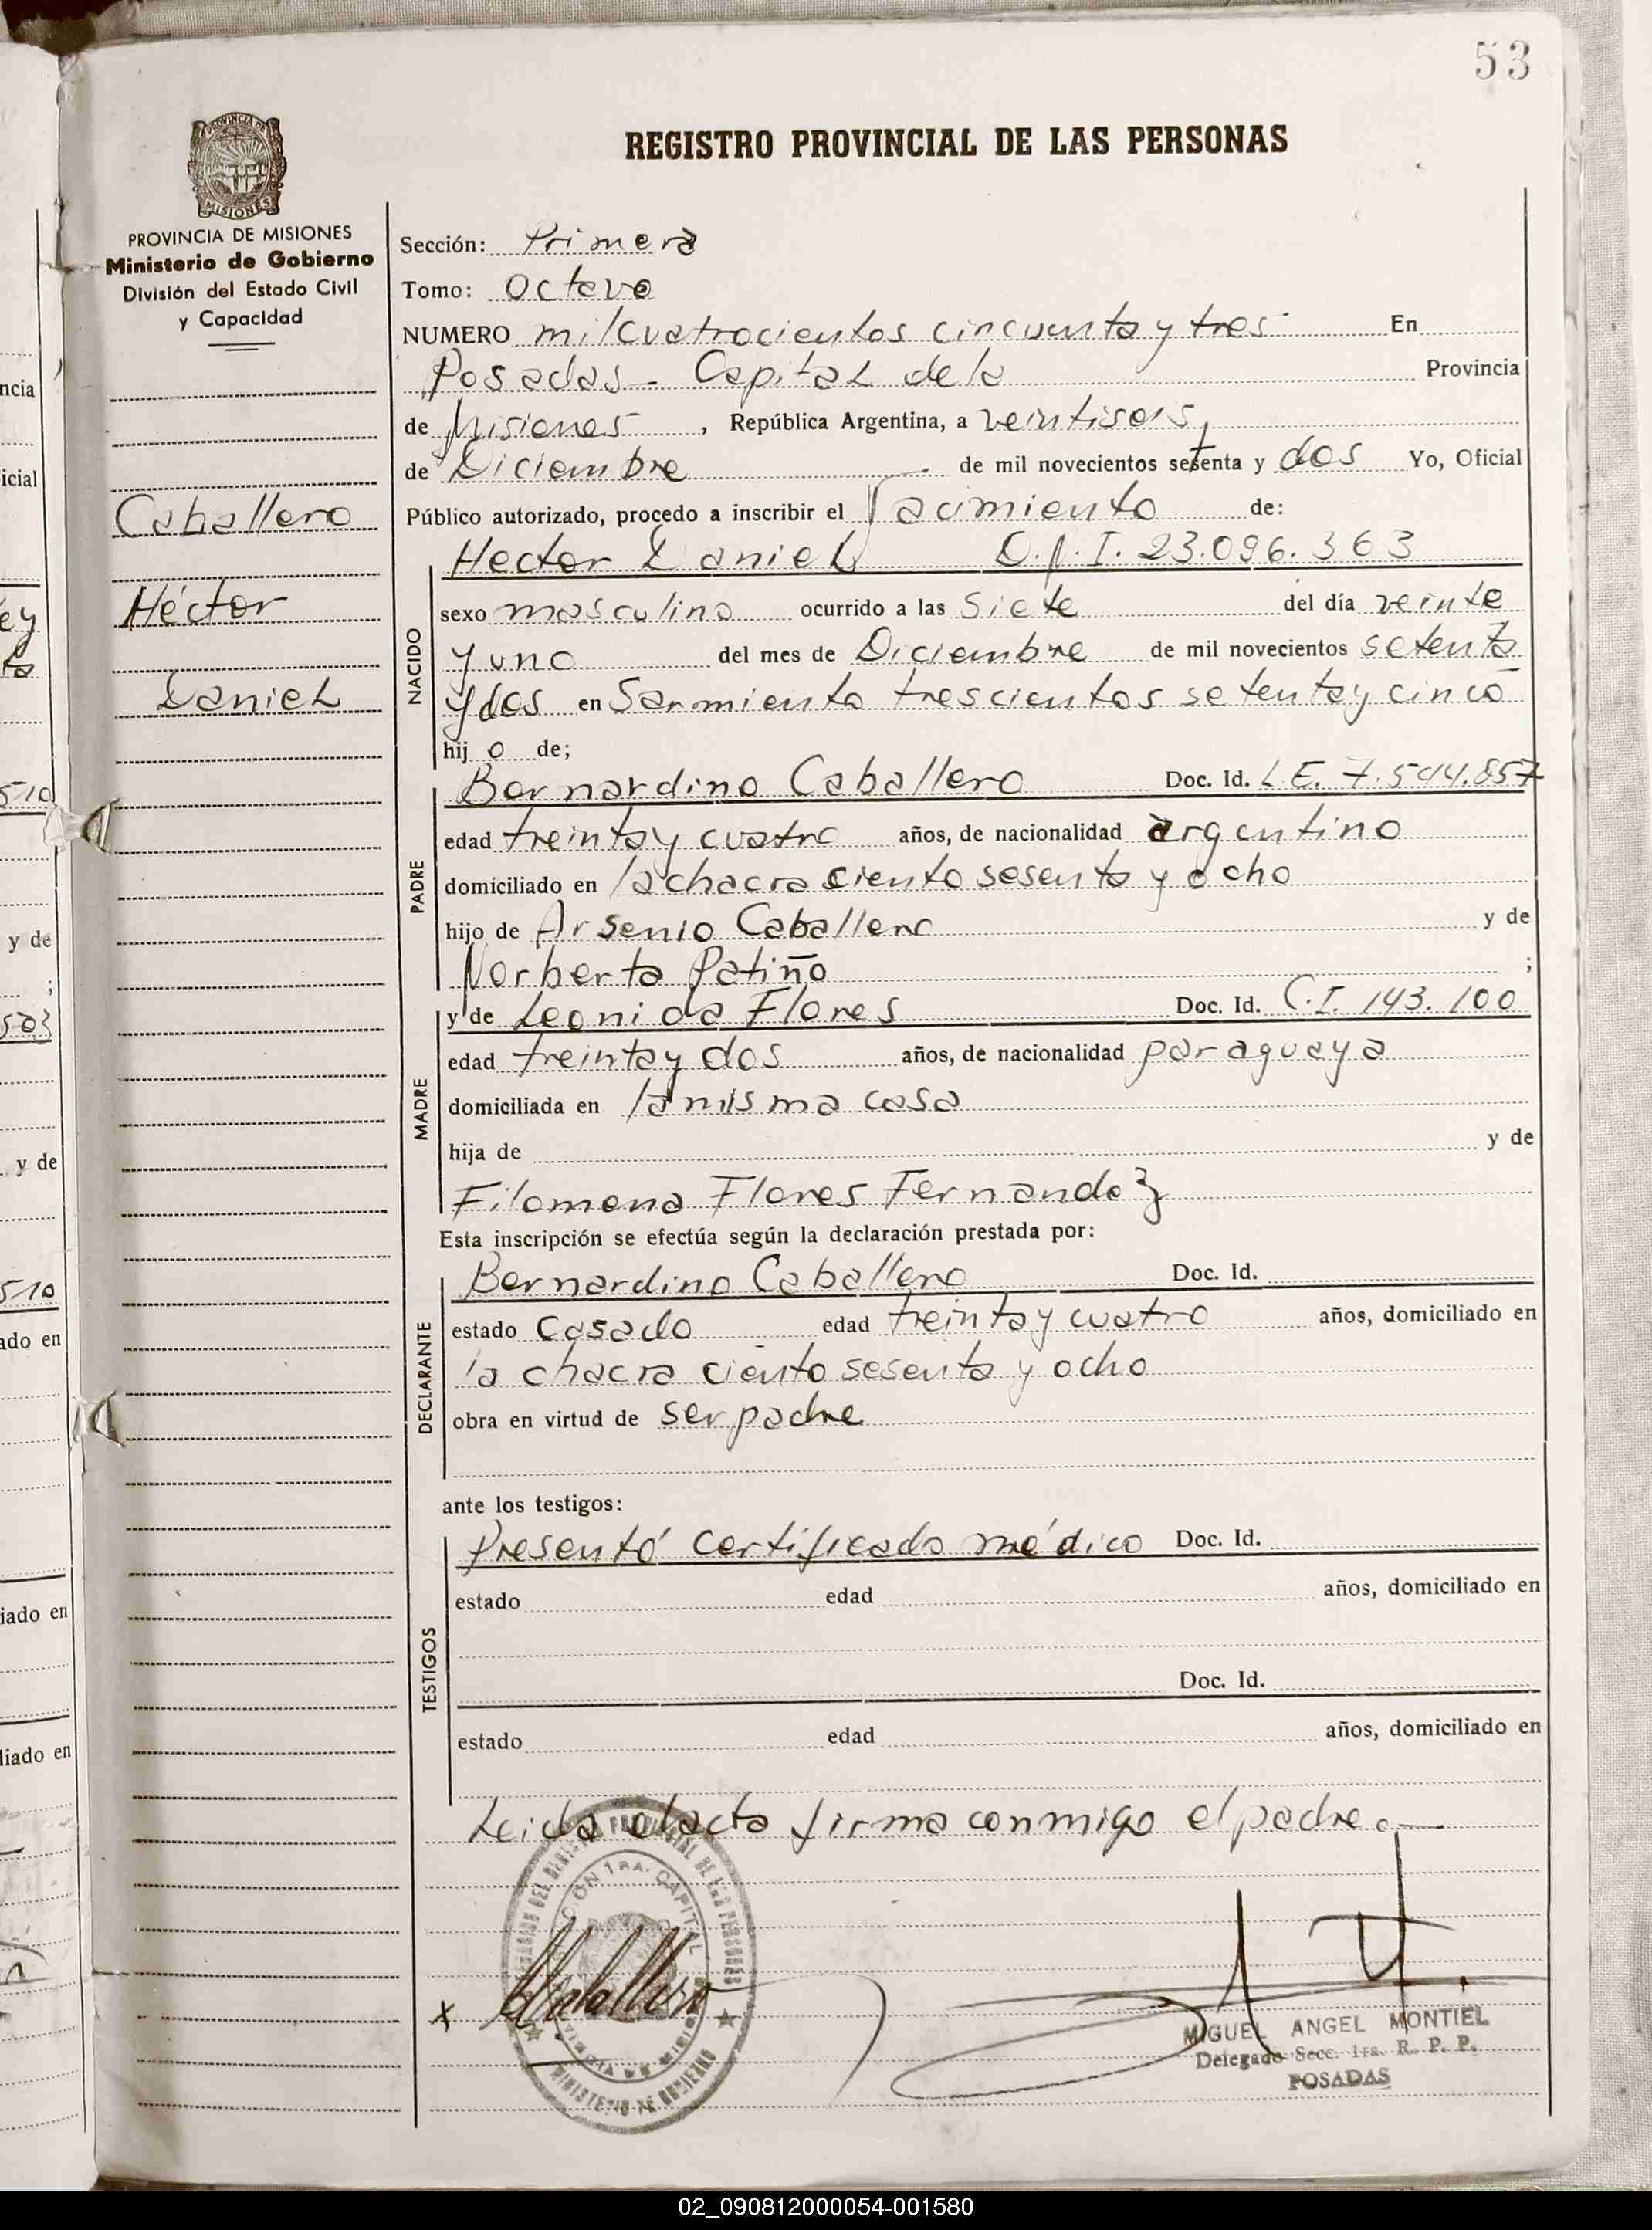 53
PROVINCIA DE
MISIONES
REGISTRO PROVINCIAL DE LAS PERSONAS
PROVINCIA DE MISIONES
Ministerio de Gobierno
División del Estado Civil
y Capacidad
Caballero
Héctor
Daniel
Sección: Primera
Tomo: Octavo
NUMERO mil cuatrocientos cincuenta y tres En
Posadas - Capital de la Provincia
de Misiones, República Argentina, a veintiseis
de Diciembre de mil novecientos setenta y dos Yo, Oficial
Público autorizado, procedo a inscribir el Nacimiento de:
Hector Daniel D.N.I. 23.096.363
NACIDO
sexo masculino ocurrido a las siete del día veinte
y uno del mes de Diciembre de mil novecientos setenta
y dos en Sarmiento trescientos setenta y cinco
hijo de;
PADRE
Bernardino Caballero Doc. Id. L.E. 7.544.857
edad treinta y cuatro años, de nacionalidad argentino
domiciliado en la chacra ciento sesenta y ocho
hijo de Arsenio Caballero y de
Norberta Patiño ;
MADRE
y de Leonida Flores Doc. Id. C.I. 143.100
edad treinta y dos años, de nacionalidad paraguaya
domiciliada en la misma casa
hija de y de
Filomena Flores Fernandez
Esta inscripción se efectúa según la declaración prestada por:
DECLARANTE
Bernardino Caballero Doc. Id.
estado casado edad treinta y cuatro años, domiciliado en
la chacra ciento sesenta y ocho
obra en virtud de ser padre
ante los testigos:
TESTIGOS
Presentó certificado médico Doc. Id.
estado edad años, domiciliado en
Doc. Id.
estado edad años, domiciliado en
Leida el acta firma conmigo el padre.
REGISTRO PROVINCIAL DE LAS PERSONAS
SECCIÓN 1RA. CAPITAL
MINISTERIO DE GOBIERNO
x Caballero
MIGUEL ANGEL MONTIEL
Delegado Secc. 1ra. R. P. P.
POSADAS
ncia
icial
ey
ta
510
y de
;
503
y de
510
ado en
iado en
liado en
02_090812000054-001580